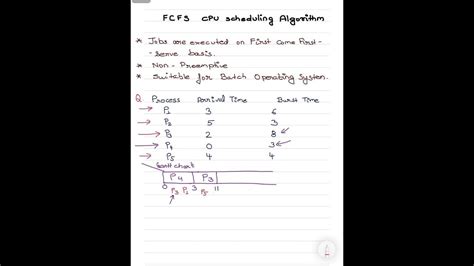 FCFS CPU Scheduling Algorithm
* Jobs are executed on First Come First-
serve basis.
* Non-Preemptive
* Suitable for Batch Operating System.
Q Process Arrival Time Burst Time
P1 3 6
P2 5 3
P3 2 8
P4 0 3
P5 4 4
Gantt chart
P4 P3
0 P3 P1 3 P5 11